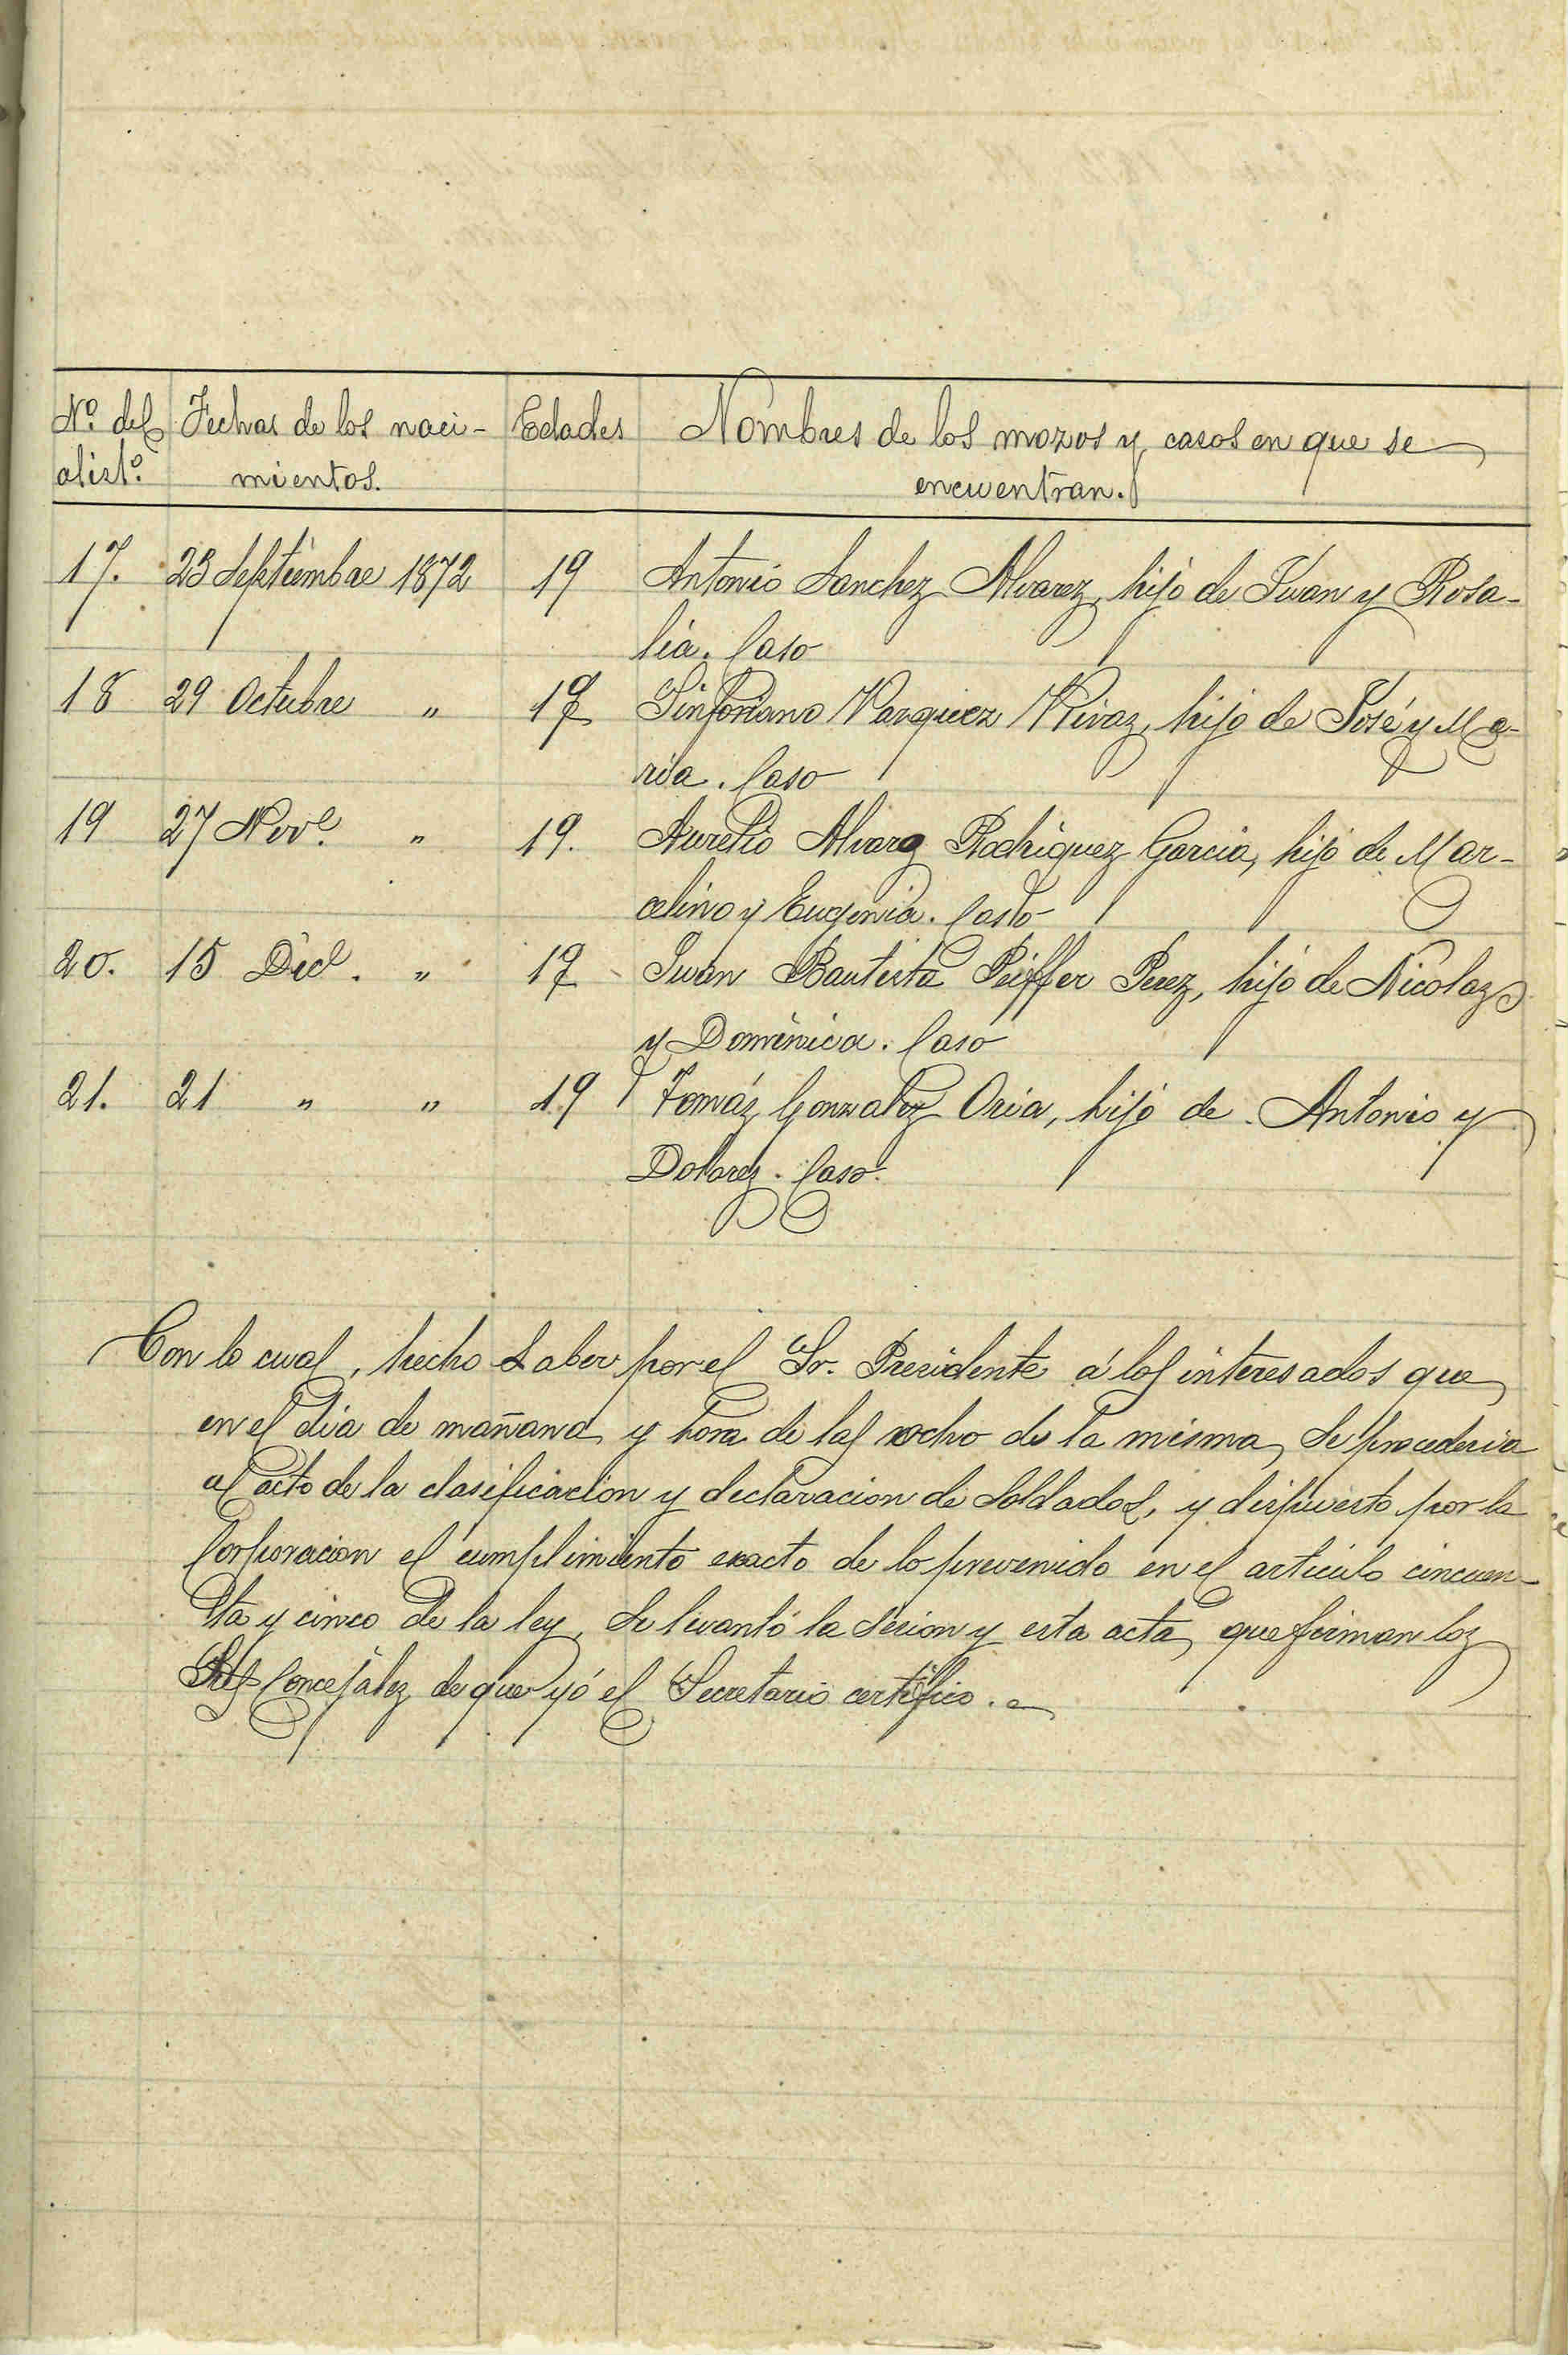 Nº del Fechas de los naci- Edades Nombres de los mozos y casos en que se
alistº. mientos. encuentran.
17. 23 Septiembre 1872 19 Antonio Sanchez Alvarez, hijo de Juan y Rosa-
lia. Caso
18 29 Octubre " 19 Sinforiano Vazquez Rivaz, hijo de José y Ma-
ria. Caso
19 27 Nove. " 19. Aurelio Alvarez Rodriguez Garcia, hijo de Mar-
celino y Eugenia. Caso
20. 15 Dice. " 19 Juan Bautista Peiffer Perez, hijo de Nicolaz
y Dominica. Caso
21. 21 " " 19 Tomáz Gonzalez Oria, hijo de Antonio y
Dolorez. Caso.
Con lo cual, hecho saber por el Sr. Presidente á los interesados que
en el dia de mañana y hora de las ocho de la misma, se procederia
al acto de la clasificacion y declaracion de soldados, y dispuesto por la
Corporacion el cumplimiento exacto de lo prevenido en el articulo cincuen-
ta y cinco de la ley, se levantó la sesion y esta acta, que firman loz
Sres Concejalez de que yó el Secretario certifico.